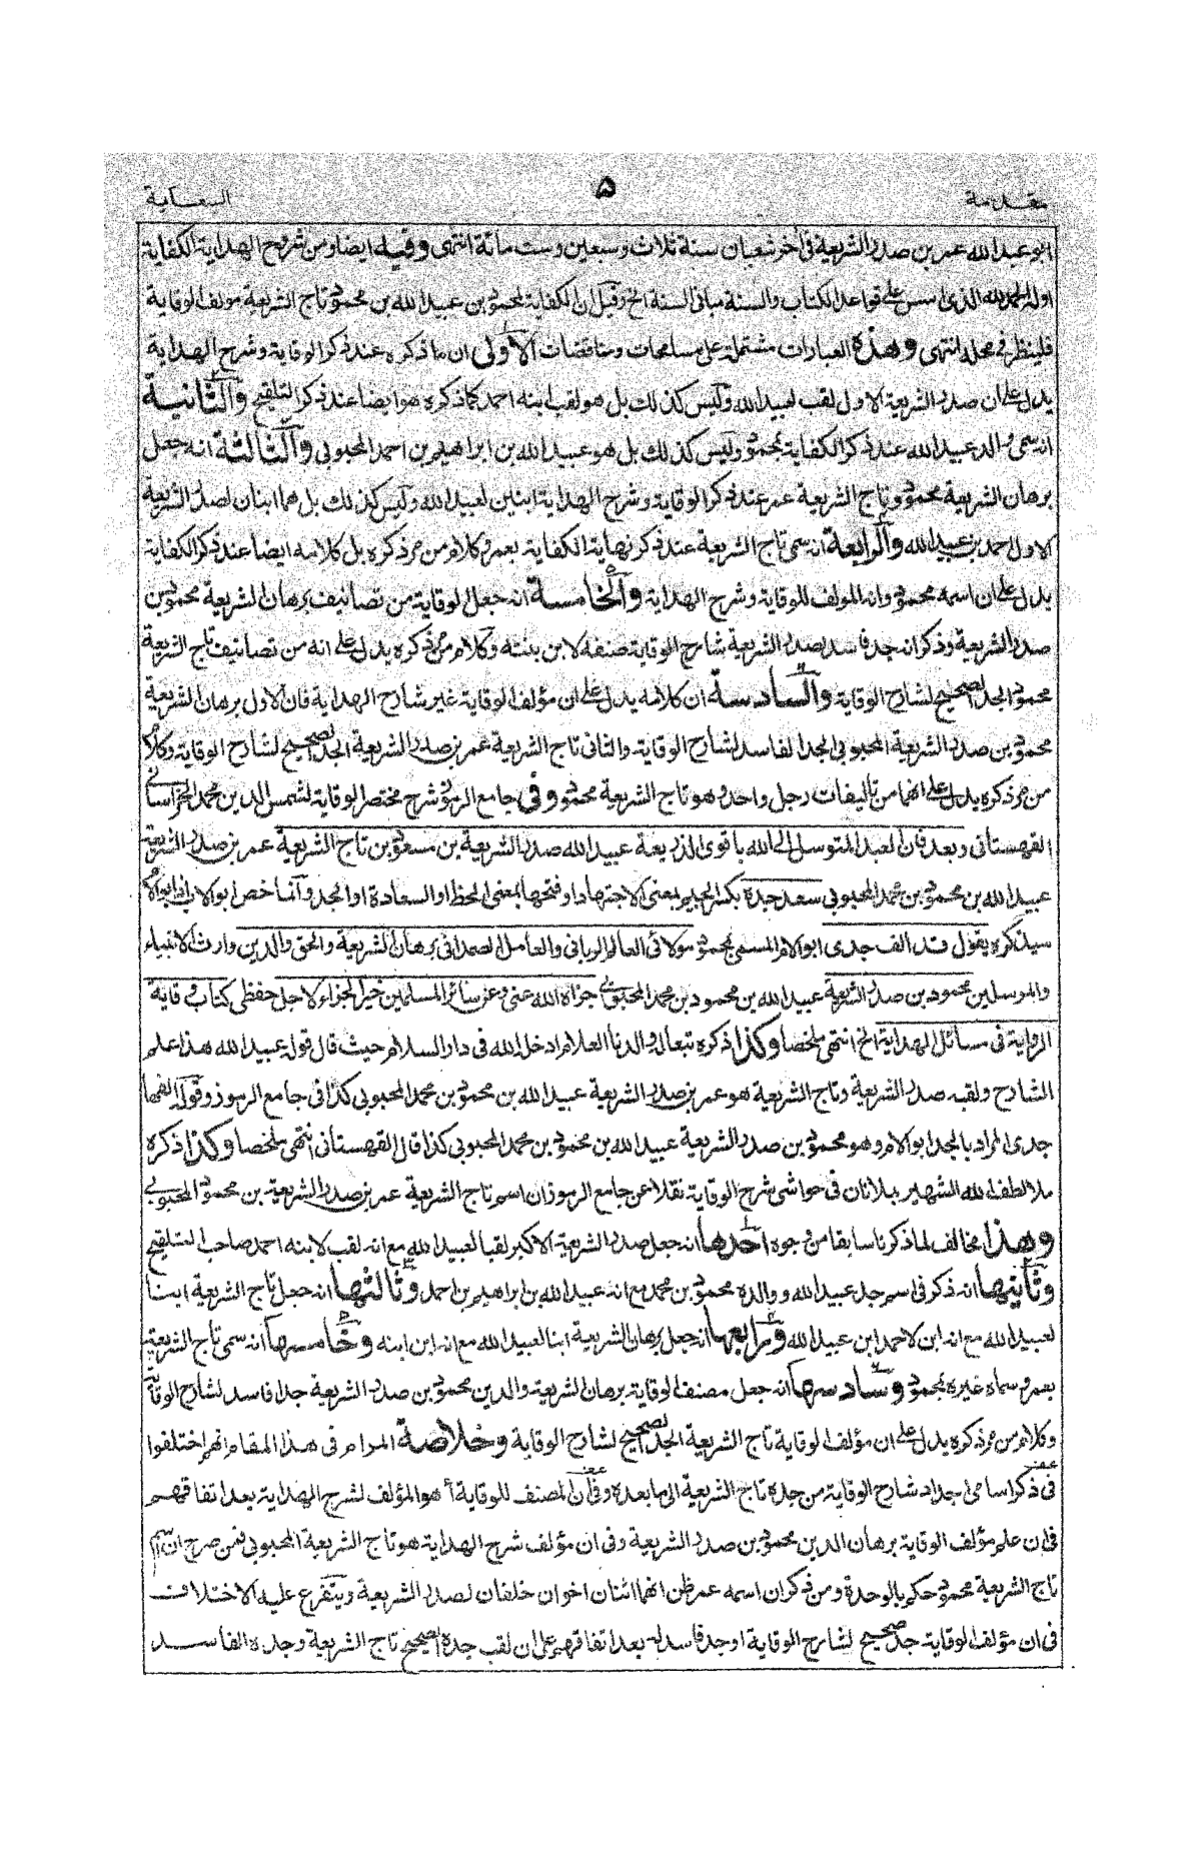 مقدمة
۵
السعاية
ابو عبد الله عمر بن صدر الشريعة فى آخر شعبان سنة ثلاث وسبعين وست مائة انتهى وفيه ايضا ومن شروح الهداية الكفاية
اوله الحمد لله الذى اسس على قواعد الكتاب والسنة مبانى السنة الخ وقيل ان الكفاية لمحمود بن عبيد الله بن محمود تاج الشريعة مؤلف الوقاية
فلينظر فى محله انتهى وهذه العبارات مشتملة على مسامحات ومناقضات الاولى ان ما ذكره عند ذكر الوقاية وشرح الهداية
يدل على ان صدر الشريعة الاول لقب لعبيد الله وليس كذلك بل هو لقب ابنه احمد كما ذكره هو ايضا عند ذكر التلقيح والثانية
انه سمى والد عبيد الله عند ذكر الكفاية بمحمود وليس كذلك بل هو عبيد الله بن ابراهيم بن احمد المحبوبى والثالثة انه جعل
برهان الشريعة محمود وتاج الشريعة عمر عند ذكر الوقاية وشرح الهداية ابنين لعبيد الله وليس كذلك بل هما ابنان لصدر الشريعة
الاول احمد بن عبيد الله والرابعة انه سمى تاج الشريعة عند ذكر نهاية الكفاية بعمر وكلام من مر ذكره بل كلامه ايضا عند ذكر الكفاية
يدل على ان اسمه محمود وانه المؤلف للوقاية وشرح الهداية والخامسة انه جعل الوقاية من تصانيف برهان الشريعة محمود بن
صدر الشريعة وذكر انه جد فاسد لصدر الشريعة شارح الوقاية صنفه لابن بنته وكلام من مر ذكره يدل على انه من تصانيف تاج الشريعة
محمود الجد الصحيح لشارح الوقاية والسادسة ان كلامه يدل على ان مؤلف الوقاية غير شارح الهداية فان الاول برهان الشريعة
محمود بن صدر الشريعة المحبوبى الجد الفاسد لشارح الوقاية والثانى تاج الشريعة عمر بن صدر الشريعة الجد الصحيح لشارح الوقاية وكلام
من مر ذكره يدل على انهما من تاليفات رجل واحد وهو تاج الشريعة محمود وفى جامع الرموز شرح مختصر الوقاية لشمس الدين محمد الخراسانى
القهستانى وبعد فان العبد المتوسل الى الله باقوى الذريعة عبيد الله صدر الشريعة بن مسعود بن تاج الشريعة عمر بن صدر الشريعة
عبيد الله بن محمود بن محمد المحبوبى سعد جده بكسر الجيم بمعنى الاجتهاد او فتحها بمعنى الحظ او السعادة او المجد وانما خص ابو الاب
سيذكره يقول قد الف جدى ابو الام المسمى بمحمود مولائى العالم الربانى والعامل الصمدانى برهان الشريعة والحق والدين وارث الانبياء
والمرسلين محمود بن صدر الشريعة عبيد الله بن محمود بن محمد المحبوبى جزاه الله عنى وعن سائر المسلمين خير الجزاء لاجل حفظى كتاب وقاية
الرواية فى مسائل الهداية الخ انتهى ملخصا وكذا ذكره تبعا له والدنا العلام ادخله الله فى دار السلام حيث قال قوله عبيد الله هذا علم
الشارح ولقبه صدر الشريعة وتاج الشريعة هو عمر بن صدر الشريعة عبيد الله بن محمود بن محمد المحبوبى كذا فى جامع الرموز وقوله الفها
جدى المراد بالجد ابو الام وهو محمود بن صدر الشريعة عبيد الله بن محمود بن محمد المحبوبى كذا قال القهستانى انتهى ملخصا وكذا ذكره
ملا لطف الله الشهير فى حواشى شرح الوقاية نقلا عن جامع الرموز ان اسم تاج الشريعة عمر بن صدر الشريعة بن محمود المحبوبى
وهذا مخالف لما ذكرنا سابقا من وجوه احدها انه جعل صدر الشريعة الاكبر لقبا لعبيد الله مع انه لقب لابنه احمد صاحب التلقيح
وثانيها انه ذكر فى اسم جد عبيد الله ووالده محمود بن محمد مع انه عبيد الله بن ابراهيم بن احمد وثالثها انه جعل تاج الشريعة ابنا
لعبيد الله مع انه ابن لاحمد ابن عبيد الله ورابعها انه جعل برهان الشريعة ابنا لعبيد الله مع انه ابن ابنه وخامسها انه سمى تاج الشريعة
بعمر وسماه غيره بمحمود وسادسها انه جعل مصنف الوقاية برهان الشريعة والدين محمود بن صدر الشريعة جدا فاسد لشارح الوقاية
وكلام من مر ذكره يدل على ان مؤلف الوقاية تاج الشريعة الجد الصحيح لشارح الوقاية وخلاصة المرام فى هذا المقام انهم اختلفوا
فى ذكر اسامى اجداد شارح الوقاية من جده تاج الشريعة الى ما بعده وفى ان المصنف للوقاية أ هو المؤلف لشرح الهداية بعد اتفاقهم
فى ان علم مؤلف الوقاية برهان الدين محمود بن صدر الشريعة وفى ان مؤلف شرح الهداية هو تاج الشريعة المحبوبى فمن صرح ان اسم
تاج الشريعة محمود حكم بالوحدة ومن ذكر ان اسمه عمر ظن انهما اثنان اخوان خلفان لصدر الشريعة ويتفرع عليه الاختلاف
فى ان مؤلف الوقاية جد صحيح لشارح الوقاية او جد فاسد له بعد اتفاقهم على ان لقب جده الصحيح تاج الشريعة وجده الفاسد